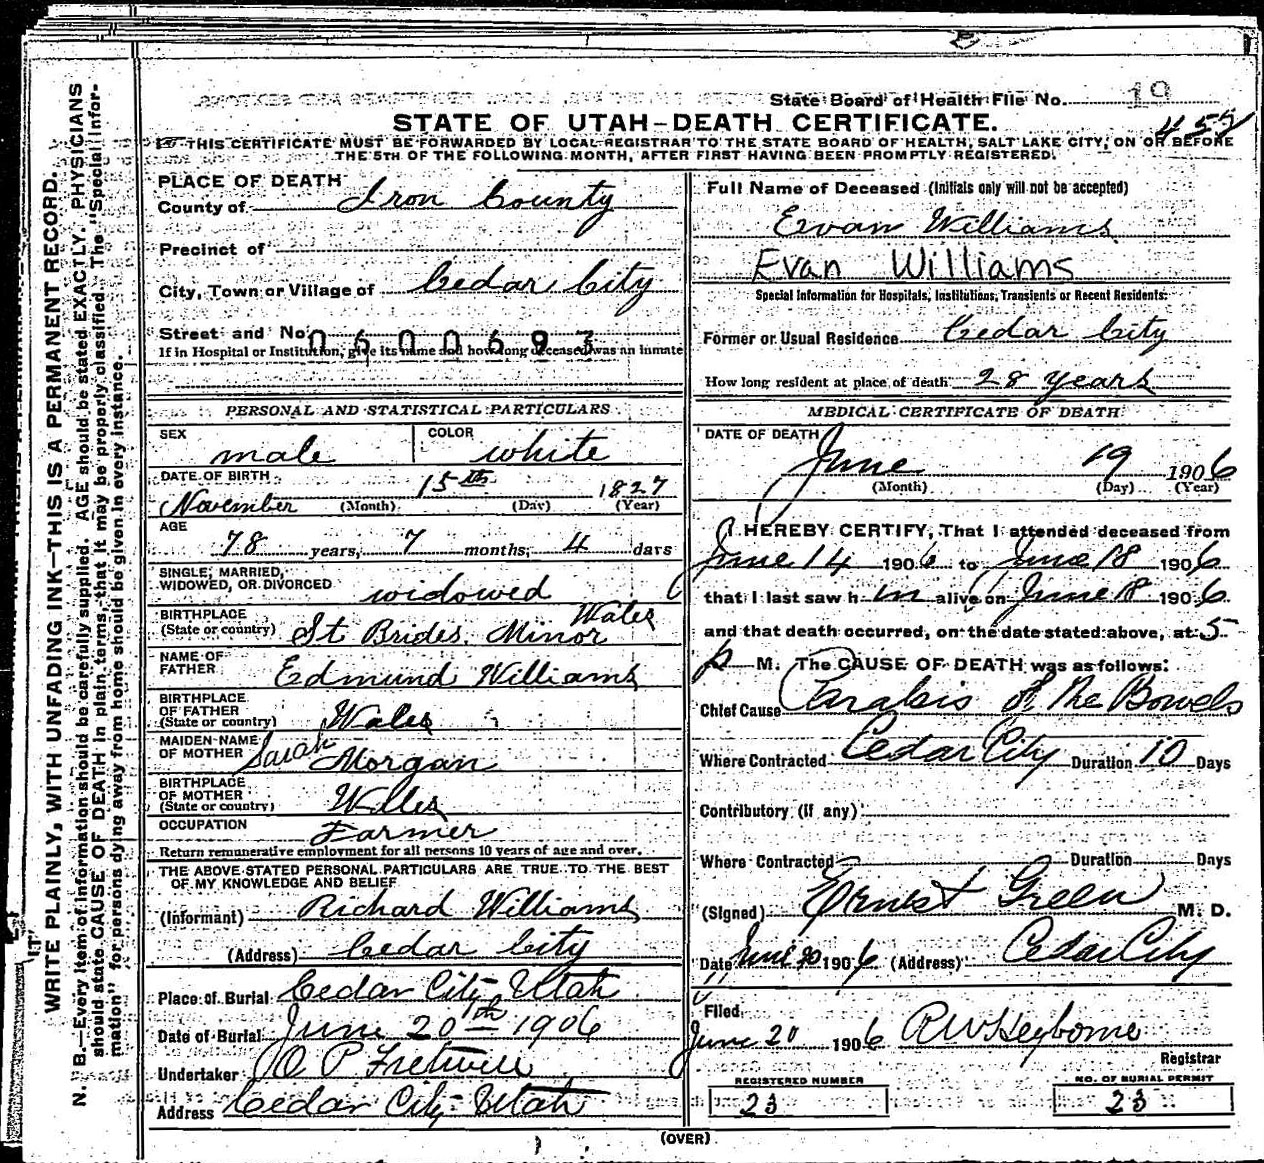 State Board of Health File No. 19
458
STATE OF UTAH—DEATH CERTIFICATE.
THIS CERTIFICATE MUST BE FORWARDED BY LOCAL REGISTRAR TO THE STATE BOARD OF HEALTH, SALT LAKE CITY, ON OR BEFORE
THE 5TH OF THE FOLLOWING MONTH, AFTER FIRST HAVING BEEN PROMPTLY REGISTERED.
WRITE PLAINLY, WITH UNFADING INK—THIS IS A PERMANENT RECORD.
N. B.—Every item of information should be carefully supplied. AGE should be stated EXACTLY. PHYSICIANS
should state CAUSE OF DEATH in plain terms, that it may be properly classified. The "Special Infor-
mation" for persons dying away from home should be given in every instance.
PLACE OF DEATH
County of Iron County
Precinct of
City, Town or Village of Cedar City
Street and No. 0600693
If in Hospital or Institution, give its name and how long deceased was an inmate
PERSONAL AND STATISTICAL PARTICULARS
SEX male COLOR white
DATE OF BIRTH
November (Month) 15th (Day) 1827 (Year)
AGE
78 years, 7 months, 4 days
SINGLE, MARRIED,
WIDOWED, OR DIVORCED widowed
BIRTHPLACE
(State or country) St Brides. Minor Wales
NAME OF
FATHER Edmund Williams
BIRTHPLACE
OF FATHER
(State or country) Wales
MAIDEN NAME
OF MOTHER Sarah Morgan
BIRTHPLACE
OF MOTHER
(State or country) Wales
OCCUPATION Farmer
Return remunerative employment for all persons 10 years of age and over.
THE ABOVE STATED PERSONAL PARTICULARS ARE TRUE TO THE BEST
OF MY KNOWLEDGE AND BELIEF
(Informant) Richard Williams
(Address) Cedar City
Place of Burial Cedar City Utah
Date of Burial June 20th 1906
Undertaker O P Fretwell
Address Cedar City Utah
Full Name of Deceased (Initials only will not be accepted)
Evan Williams
Evan Williams
Special Information for Hospitals, Institutions, Transients or Recent Residents:
Former or Usual Residence Cedar City
How long resident at place of death 28 years
MEDICAL CERTIFICATE OF DEATH
DATE OF DEATH
June 19 1906
(Month) (Day) (Year)
I HEREBY CERTIFY, That I attended deceased from
June 14 1906 to June 18 1906
that I last saw him alive on June 18 1906
and that death occurred, on the date stated above, at 5
p M. The CAUSE OF DEATH was as follows:
Chief Cause Paralsis of The Bowels
Where Contracted Cedar City Duration 10 Days
Contributory (if any)
Where Contracted Duration Days
(Signed) Ernest Green M. D.
Date June 20 1906 (Address) Cedar City
Filed
June 20 1906 R W Heyborne
Registrar
REGISTERED NUMBER
23
NO. OF BURIAL PERMIT
23
(OVER)